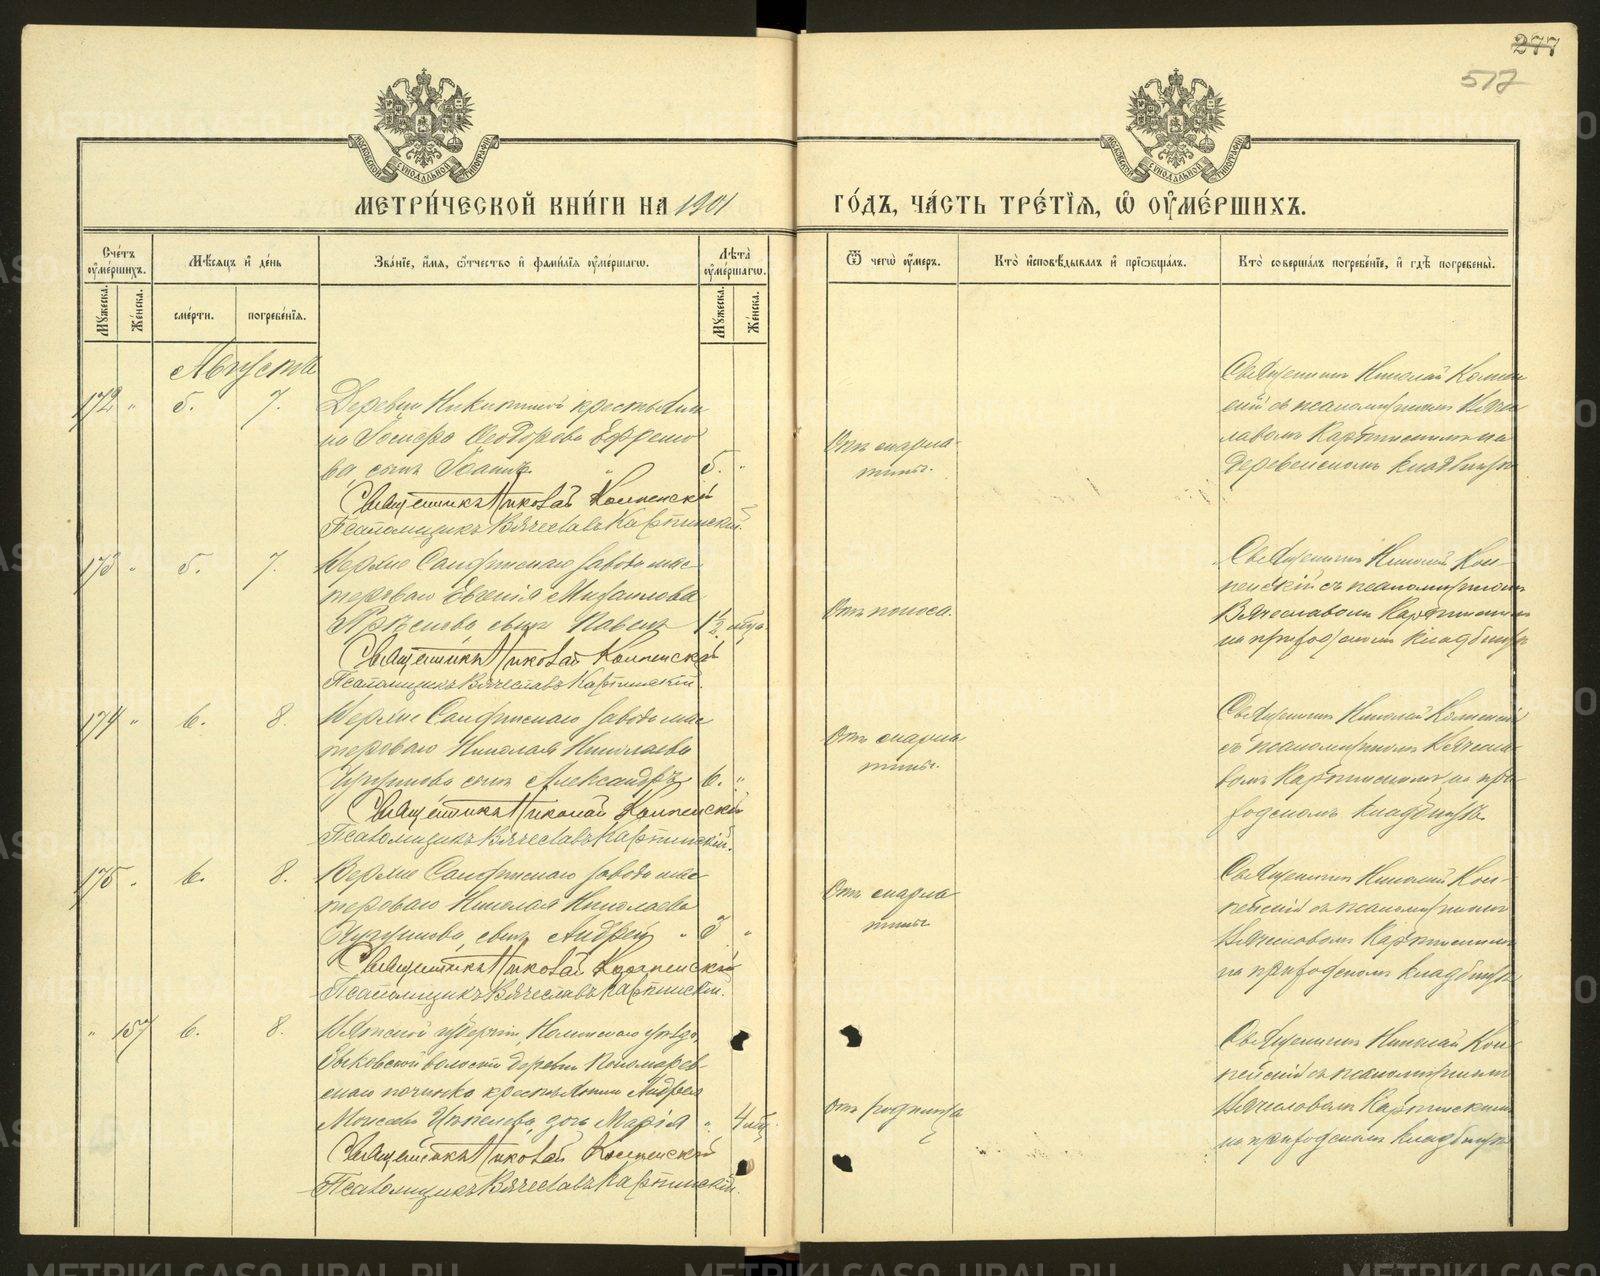 277
517
МЕТРИ́ЧЕСКОЙ КНИ́ГИ НА 1901
ГО́ДЪ, ЧА́СТЬ ТРЕ́ТІѦ, Ѡ ОУМЕ́РШИХЪ.
Сче́тъ оуме́ршихъ.
Мѣ́сяцъ и де́нь
Зва́ніе, и́мя, ѻ́тчество и фами́лія оуме́ршагѡ.
Лѣ́та оуме́ршагѡ.
Ѿ чегѡ̀ оу́меръ.
Кто̀ и҆сповѣ́дывалъ и҆ прїѡбща́лъ.
Кто̀ соверша́лъ погребе́ніе, и҆ гдѣ̀ погребены̀.
Мꙋ́жеска.
Же́нска.
сме́рти.
погребе́нія.
Мꙋ́жеска.
Же́нска.
Августа
172 " 5. 7.
Деревни Никитиной крестьяни
на Іосифа Ѳеодорова Ефремо
ва, сынъ Іоаннъ. 5. "
Священникъ Николай Коппенскій
Псаломщикъ Вячеславъ Карпинскій.
Отъ скарла-
тины.
Священникъ Николай
съ псаломщикомъ Вяче
славомъ Карпинскимъ на
деревенскомъ кладбищѣ
173 " 5. 7.
Верхне Салдинскаго завода мас
тероваго Евгенія Михаилова
сынъ Павелъ 1½ мѣс.
Священникъ Николай Коппенскій
Псаломщикъ Вячеславъ Карпинскій.
Отъ поноса.
Священникъ Николай Коп-
пенскій съ псаломщикомъ
Вячеславомъ Карпинскимъ
на приходскомъ кладбищѣ
174 " 6. 8.
Верхне Салдинскаго завода мас
тероваго Николая Николаева
сынъ Александръ 6. "
Священникъ Николай Коппенскій
Псаломщикъ Вячеславъ Карпинскій.
Отъ скарла
тины.
Священникъ Николай Коппенскій
съ псаломщикомъ Вячесла-
вомъ Карпинскимъ на при-
ходскомъ кладбищѣ.
175 " 6. 8.
Верхне Салдинскаго завода мас
тероваго Николая Николаева
сынъ Андрей " 3 "
Священникъ Николай Коппенскій
Псаломщикъ Вячеславъ Карпинскій.
Отъ скарла
тины
Священникъ Николай Коп-
пенскій съ псаломщикомъ
Вячеславомъ Карпинскимъ
на приходскомъ кладбищѣ
" 157 6. 8.
Вятской губерніи, Нолинскаго уѣзда,
Быковской волости деревни Пономарев-
скаго починка крестьянина Андрея
Моисеева дочь Марія " 4 мѣс.
Священникъ Николай Коппенскій
Псаломщикъ Вячеславъ Карпинскій.
Отъ родимца
Священникъ Николай Коп
пенскій съ псаломщикомъ
Вячеславомъ Карпинскимъ
на приходскомъ кладбищѣ